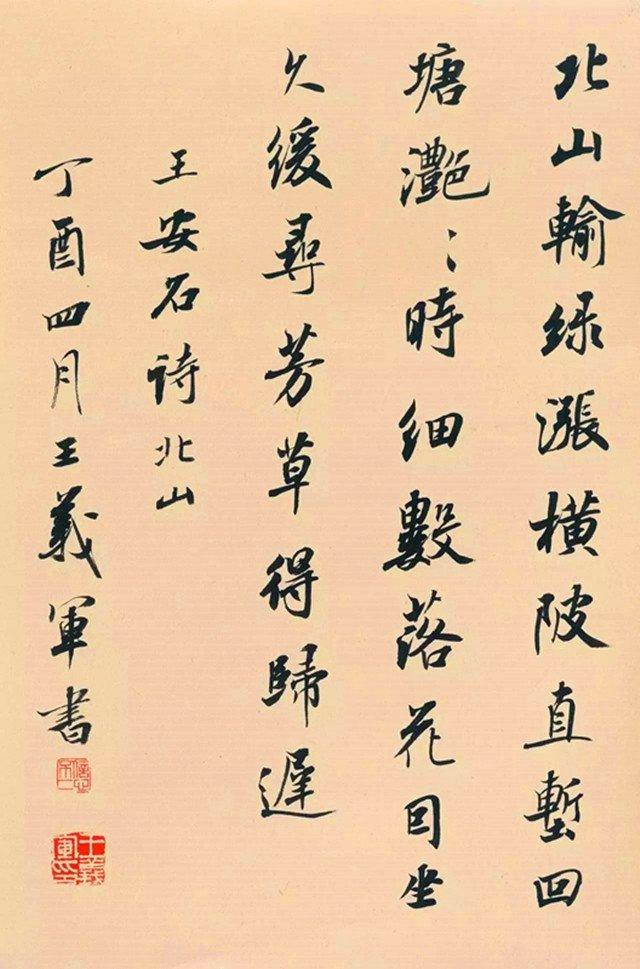 北山輸绿漲横陂直塹回
塘灔〻時细數落花因坐
久缓尋芳草得歸遲
王安石诗北山
丁酉四月王義軍書
王義軍印